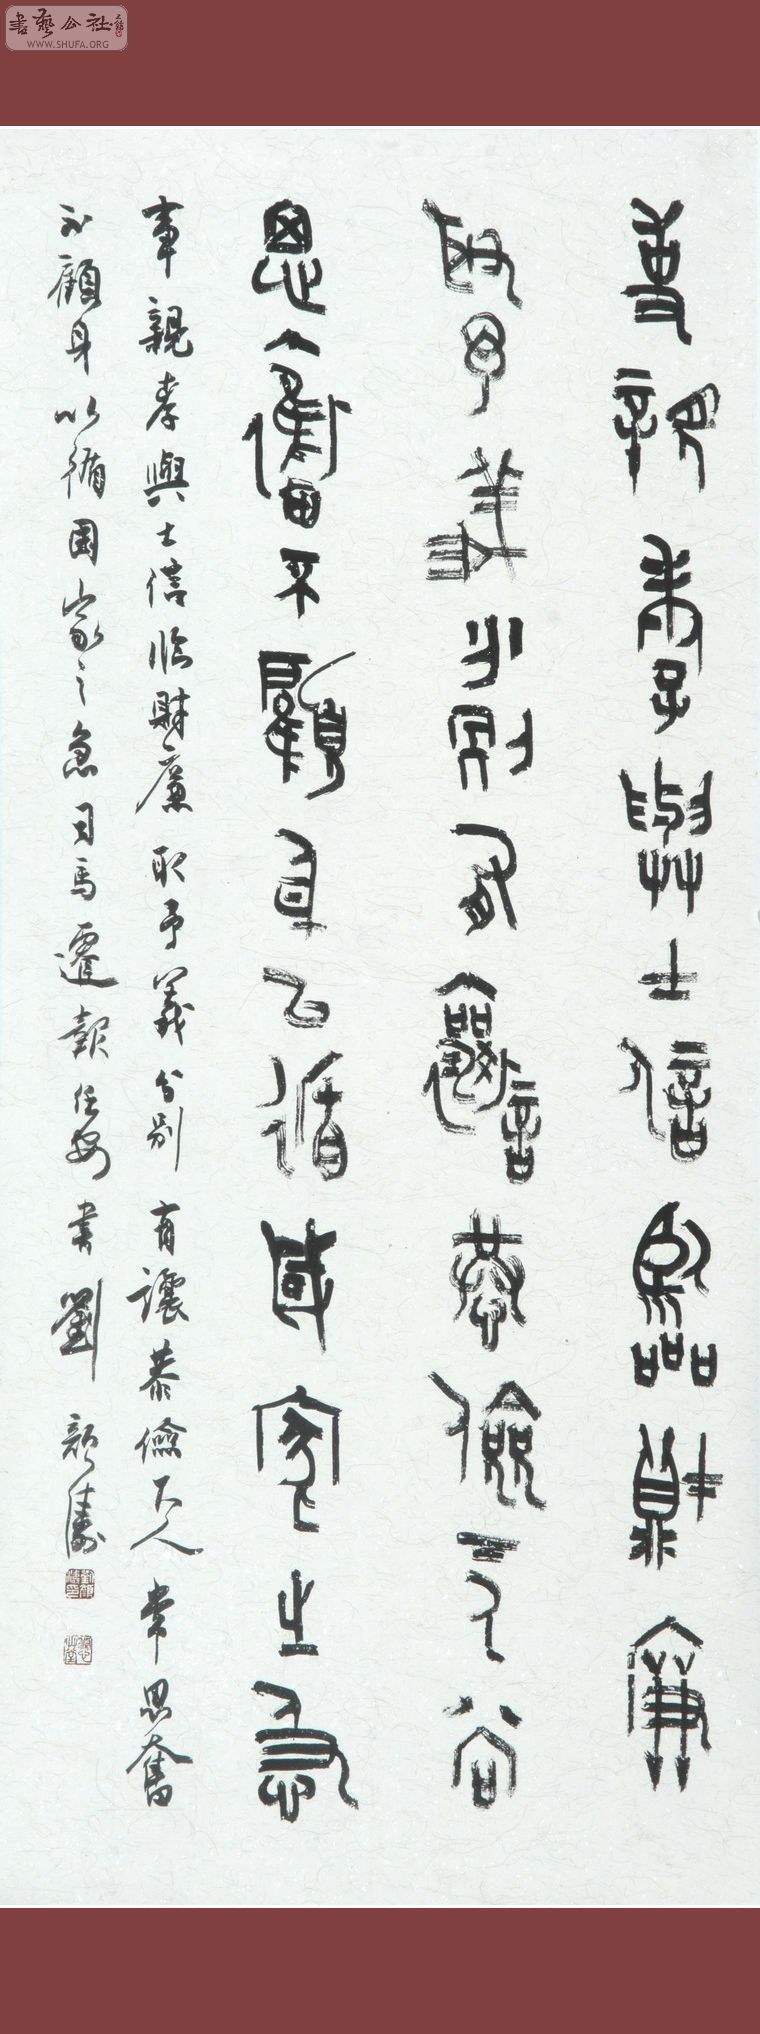 書藝公社
WWW.SHUFA.ORG
事親孝與士信臨財廉
取予義分別有讓恭儉下人
思奮不顧身以循國家之急
事親孝與士信臨財廉取予義分別有讓恭儉下人常思奮
不顧身以循國家之急司馬遷報任安書劉顏濤